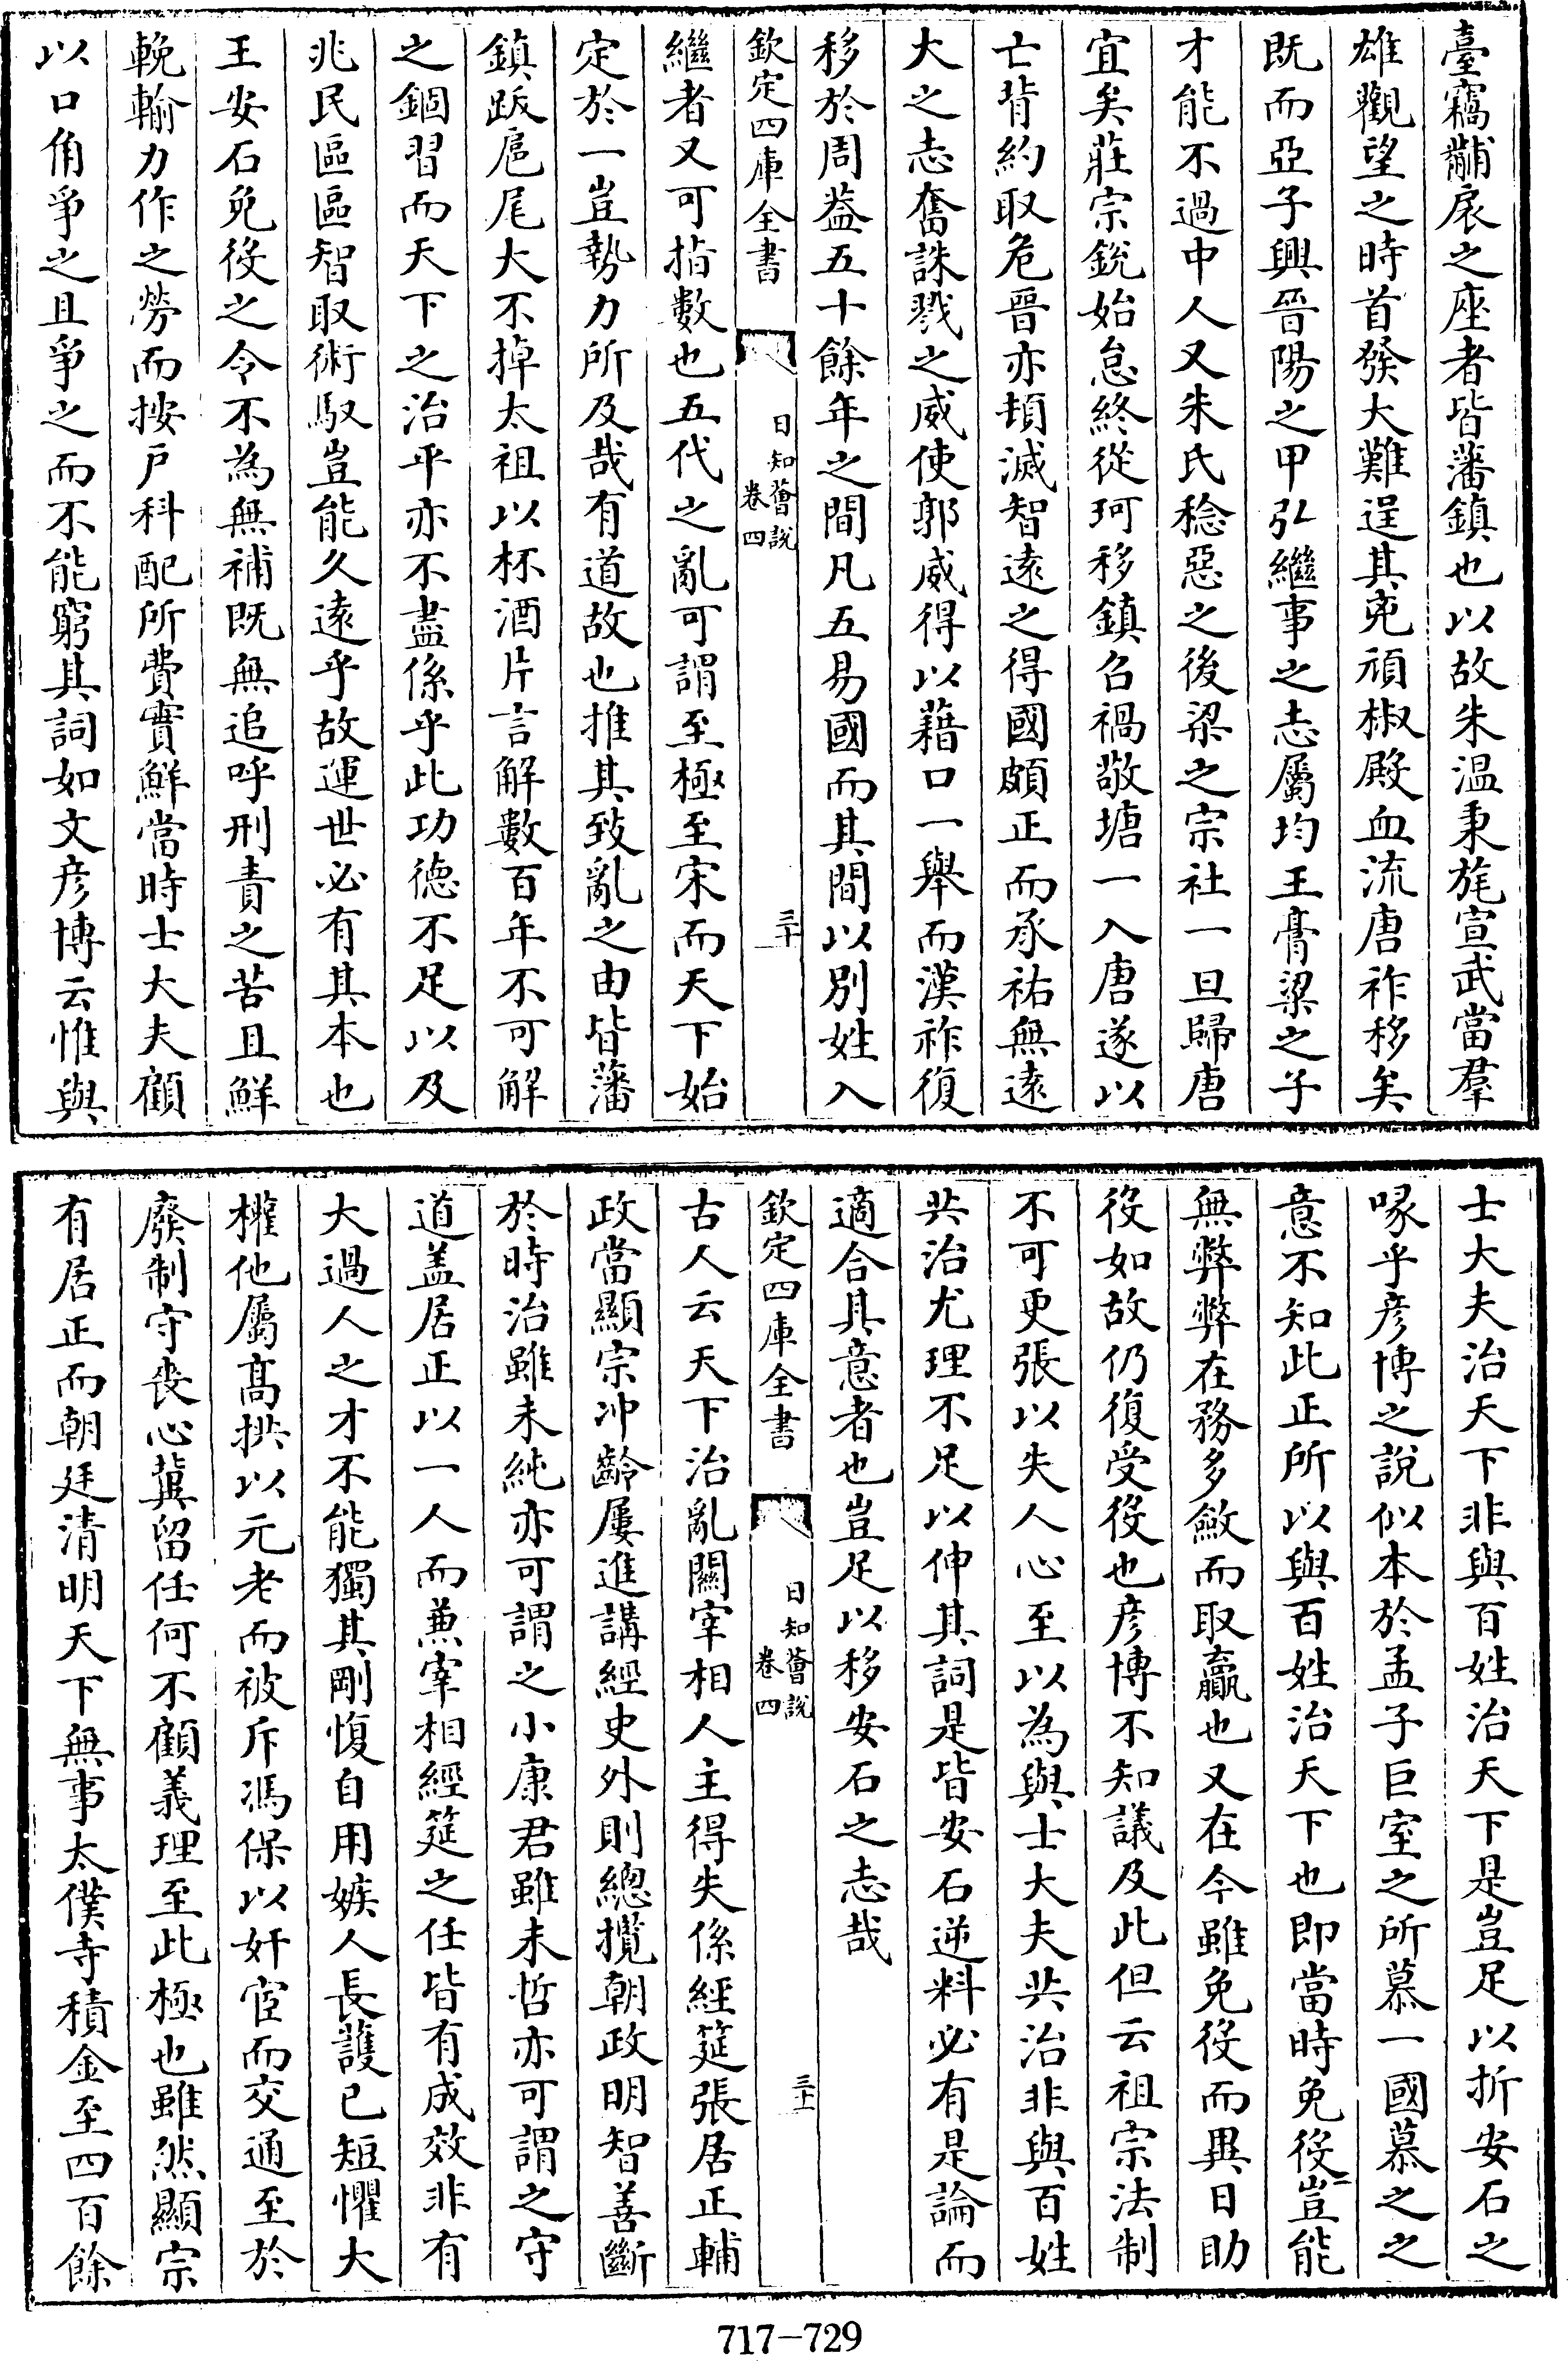 臺竊黼扆之座者皆藩鎮也以故朱温秉旄宣武當羣
雄觀望之時首發大難逞其兇頑椒殿血流唐祚移矣
既而亞子興晉陽之甲弘繼事之志屬均王膏粱之子
才能不過中人又朱氏稔惡之後梁之宗社一旦歸唐
宜矣莊宗銳始怠終從珂移鎮召禍敬塘一入唐遂以
亡背約取危晉亦頓滅智遠之得國頗正而承祐無遠
大之志奮誅戮之威使郭威得以藉口一舉而漢祚復
移於周葢五十餘年之間凡五易國而其間以別姓入
欽定四庫全書
日知薈說
卷四
三十
繼者又可指數也五代之亂可謂至極至宋而天下始
定於一豈勢力所及哉有道故也推其致亂之由皆藩
鎮跋扈尾大不掉太祖以杯酒片言解數百年不可解
之錮習而天下之治平亦不盡係乎此功德不足以及
兆民區區智取術馭豈能久遠乎故運世必有其本也
王安石免役之令不為無補既無追呼刑責之苦且鮮
輓輸力作之勞而按戶科配所費實鮮當時士大夫顧
以口角爭之且爭之而不能窮其詞如文彥博云惟與
士大夫治天下非與百姓治天下是豈足以折安石之
喙乎彥博之說似本於孟子巨室之所慕一國慕之之
意不知此正所以與百姓治天下也即當時免役豈能
無弊弊在務多斂而取贏也又在今雖免役而異日助
役如故仍復受役也彥博不知議及此但云祖宗法制
不可更張以失人心至以為與士大夫共治非與百姓
共治尤理不足以伸其詞是皆安石逆料必有是論而
適合其意者也豈足以移安石之志哉
欽定四庫全書
日知薈說
卷四
三十一
古人云天下治亂關宰相人主得失係經筵張居正輔
政當顯宗冲齡屢進講經史外則總攬朝政明智善斷
於時治雖未純亦可謂之小康君雖未哲亦可謂之守
道盖居正以一人而兼宰相經筵之任皆有成效非有
大過人之才不能獨其剛愎自用嫉人長護已短懼大
權他屬髙拱以元老而被斥馮保以奸宦而交通至於
廢制守喪心冀留任何不顧義理至此極也雖然顯宗
有居正而朝廷清明天下無事太僕寺積金至四百餘
717-729